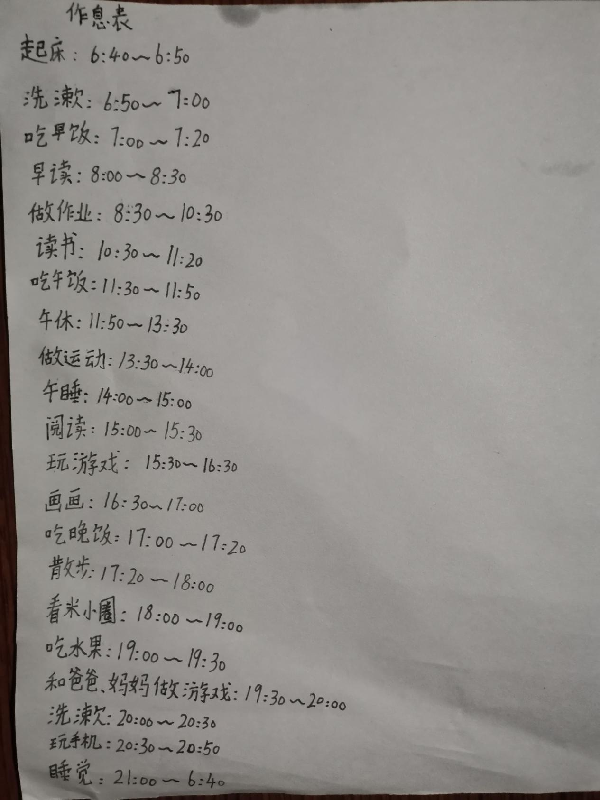 作息表
起床：6:40～6:50
洗漱：6:50～7:00
吃早饭：7:00～7:20
早读：8:00～8:30
做作业：8:30～10:30
读书：10:30～11:20
吃午饭：11:30～11:50
午休：11:50～13:30
做运动：13:30～14:00
午睡：14:00～15:00
阅读：15:00～15:30
玩游戏：15:30～16:30
画画：16:30～17:00
吃晚饭：17:00～17:20
散步：17:20～18:00
看米小圈：18:00～19:00
吃水果：19:00～19:30
和爸爸、妈妈做游戏：19:30～20:00
洗漱：20:00～20:30
玩手机：20:30～20:50
睡觉：21:00～6:40